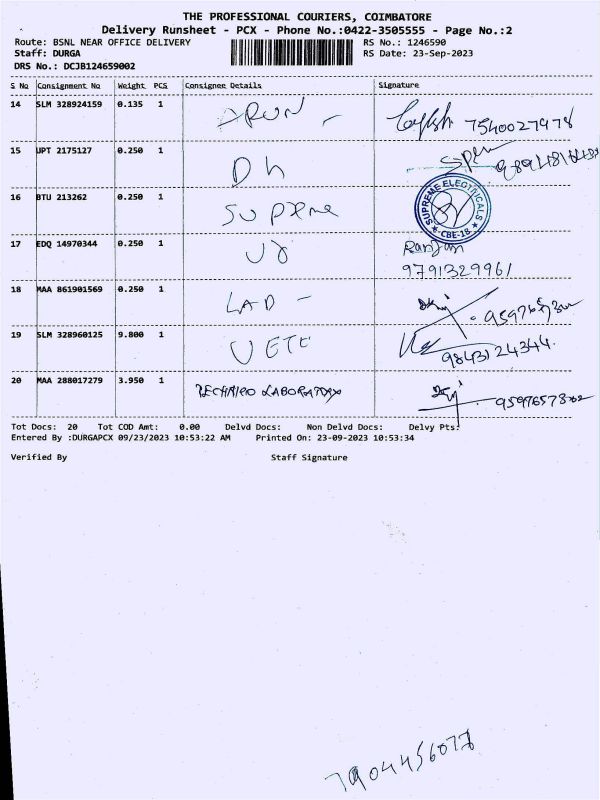 THE PROFESSIONAL COURIERS, COIMBATORE
Delivery Runsheet - PCX - Phone No.:0422-3505555 - Page No.:2
Route: BSNL NEAR OFFICE DELIVERY RS No.: 1246590
Staff: DURGA RS Date: 23-Sep-2023
DRS No.: DCJB124659002
S No Consignment No Weight PCS Consignee Details Signature
14 SLM 328924159 0.135 1 ARUN - 7540027978
15 UPT 2175127 0.250 1 Dh
16 BTU 213262 0.250 1 SUPREME SUPREME ELECTRICALS ★ CBE-18 ★
17 EDQ 14970344 0.250 1 Ranjan
9791329961
18 MAA 861901569 0.250 1 LAD -
19 SLM 328960125 9.800 1 VETC 9843124344.
20 MAA 288017279 3.950 1 TECHNICO LABORATORY
Tot Docs: 20 Tot COD Amt: 0.00 Delvd Docs: Non Delvd Docs: Delvy Pts:
Entered By :DURGAPCX 09/23/2023 10:53:22 AM Printed On: 23-09-2023 10:53:34
Verified By Staff Signature